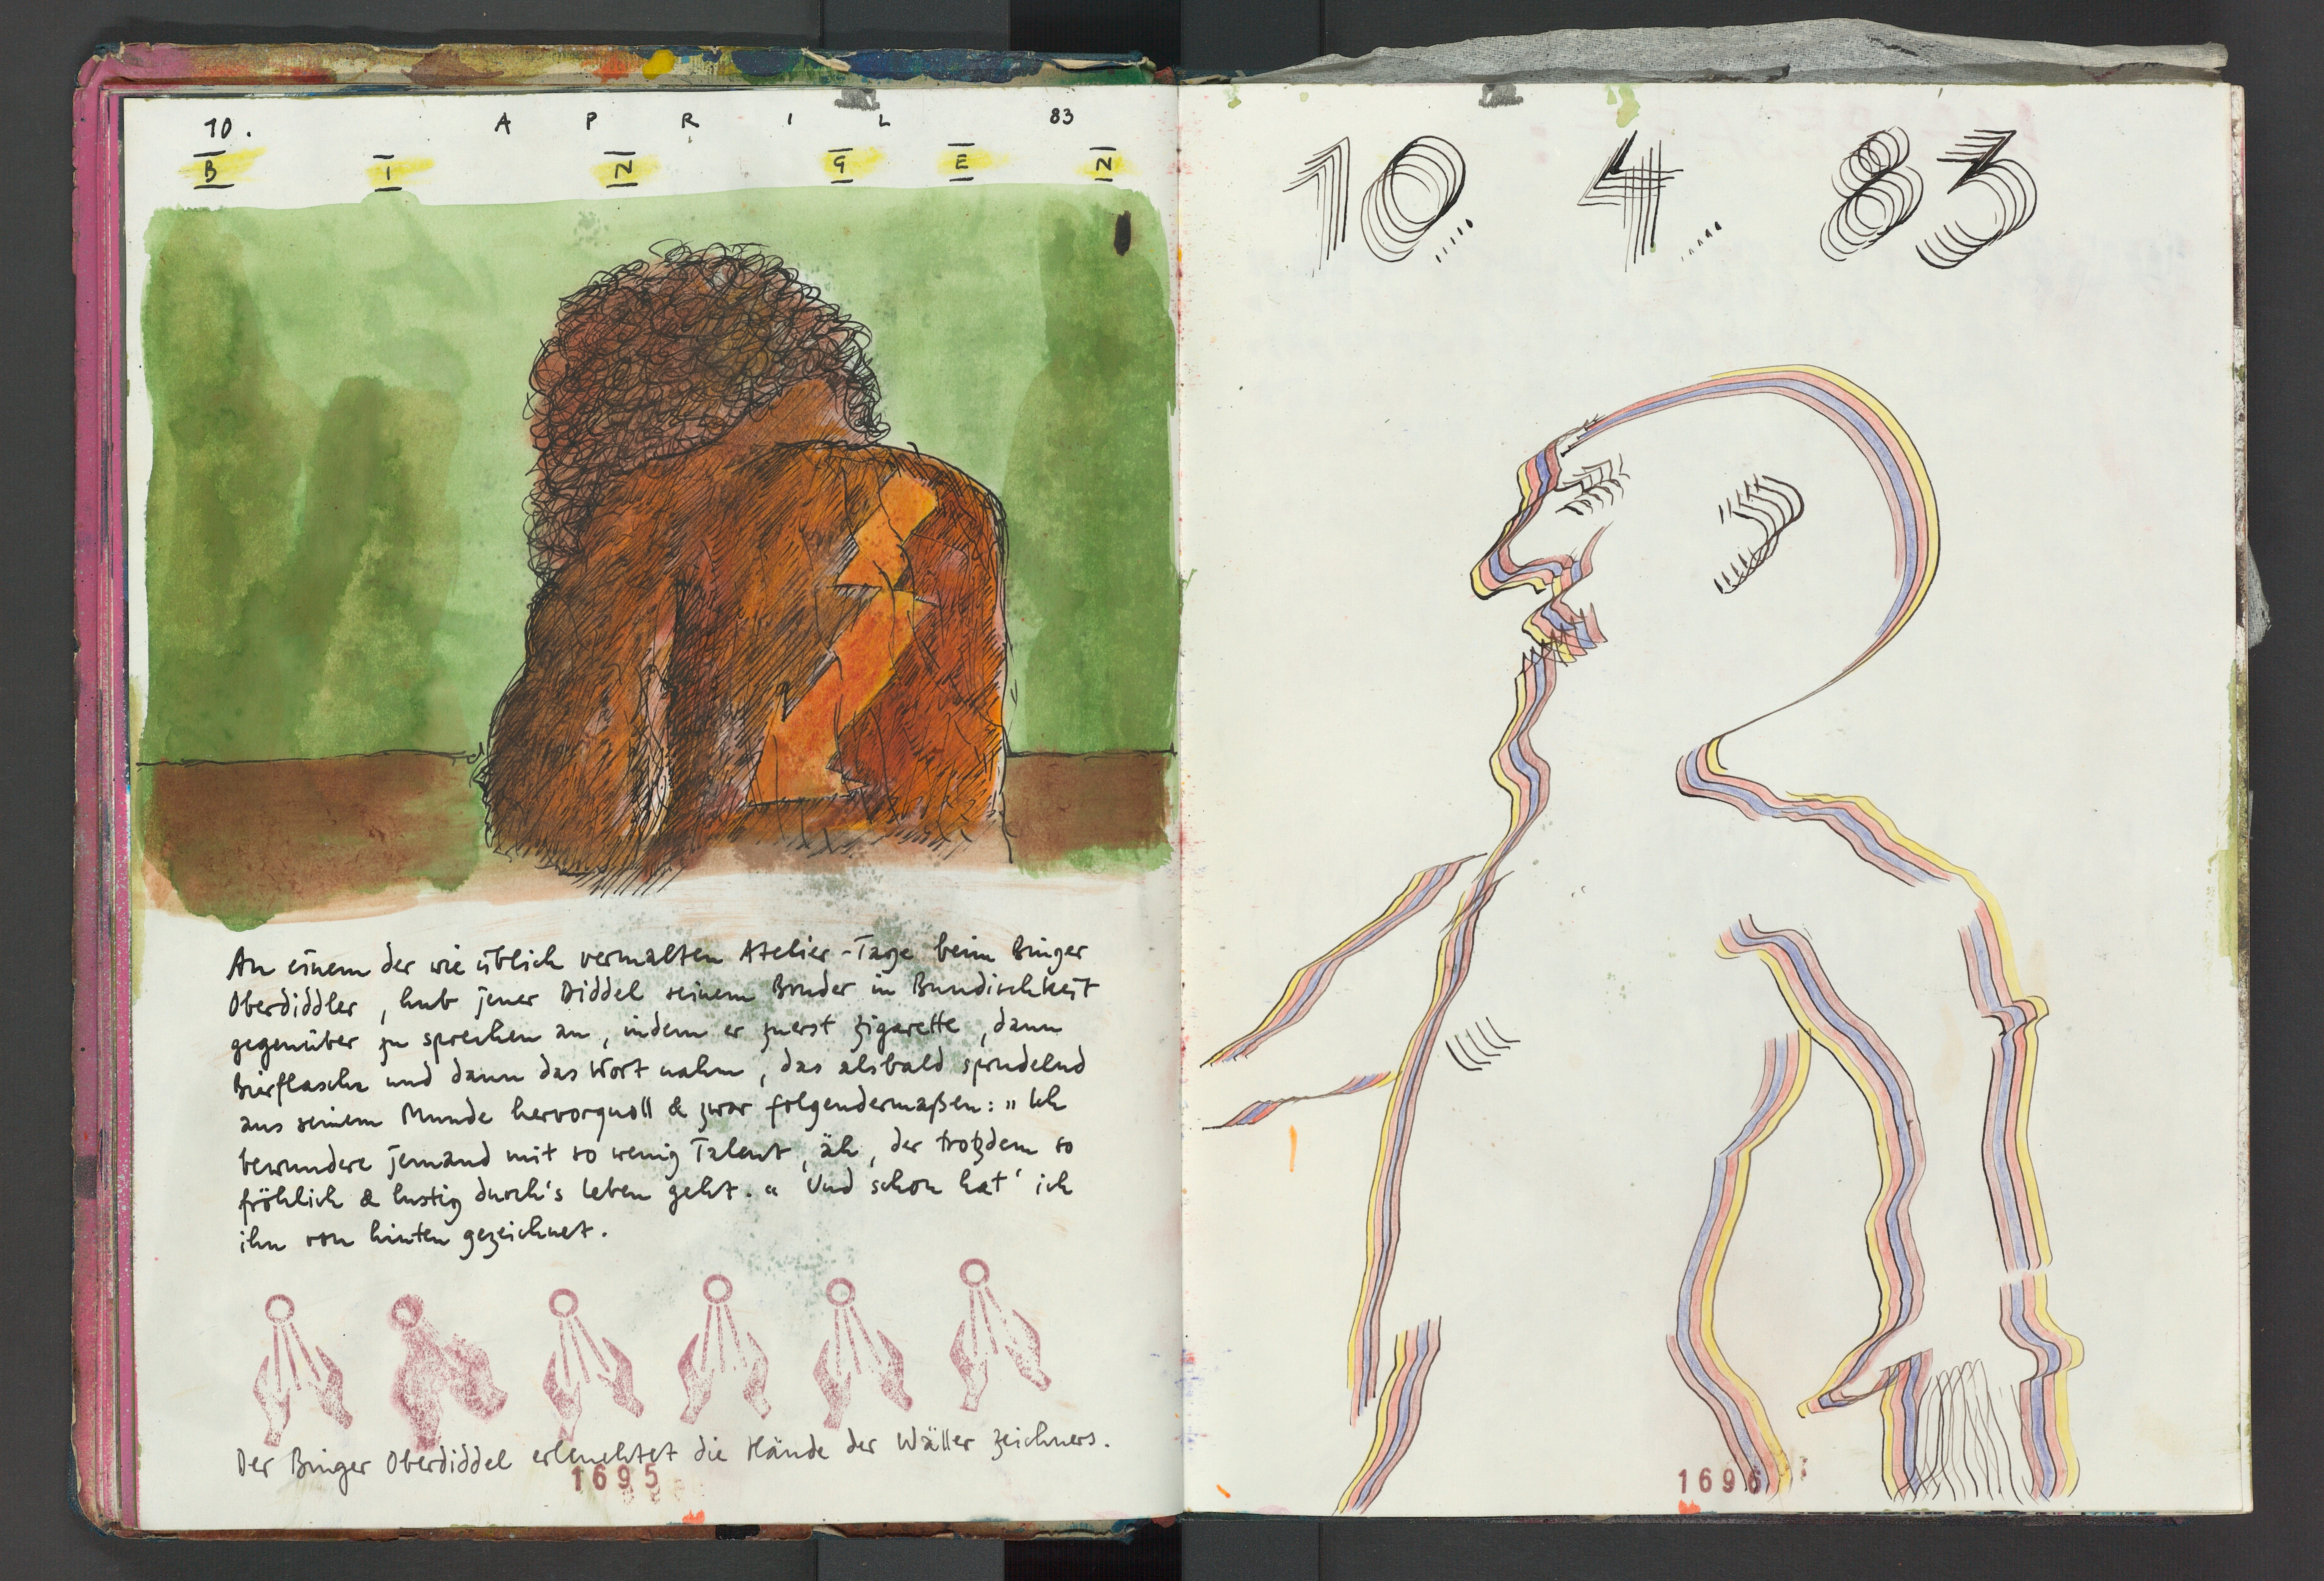 10. APRIL 83
BINGEN
An einem der wie üblich vermalten Atelier-Tage beim Binger
Oberdiddler, hub jener Diddel seinem Bruder in Bundischkeit
gegenüber zu sprechen an, indem er zuerst Zigarette, dann
Bierflasche und dann das Wort nahm, das alsbald sprudelnd
aus seinem Munde hervorquoll & zwar folgendermaßen: "Ich
bewundere jemand mit so wenig Talent, äh, der trotzdem so
fröhlich & lustig durch's Leben geht." Und schon hat' ich
ihn von hinten gezeichnet.
Der Binger Oberdiddel erleuchtet die Hände der Wäller Zeichners.
1695
10. 4. 83
1696